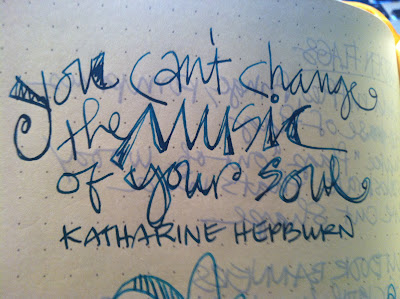 you can't change
the MUSIC
of your soul
KATHARINE HEPBURN